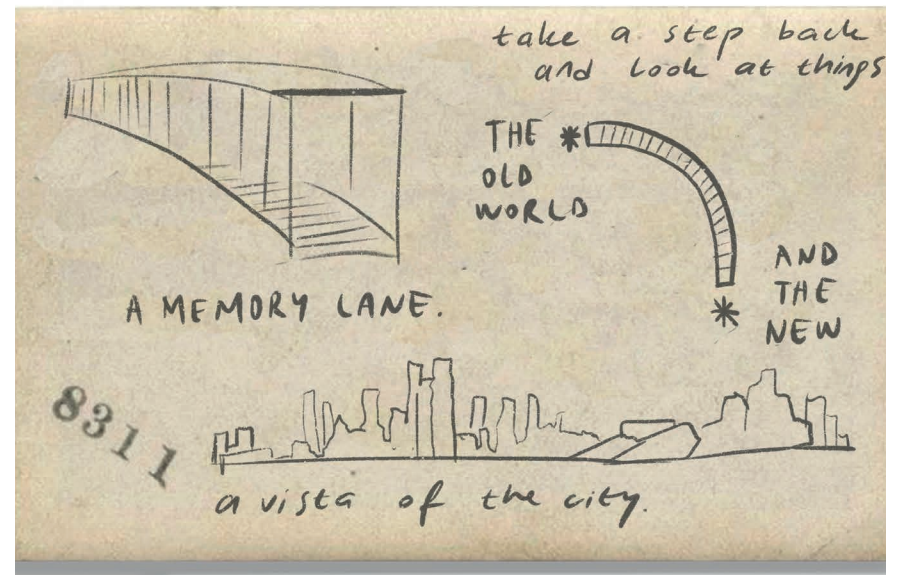 take a step back
and look at things
THE
OLD
WORLD
AND
THE
NEW
A MEMORY LANE.
8311
a vista of the city.